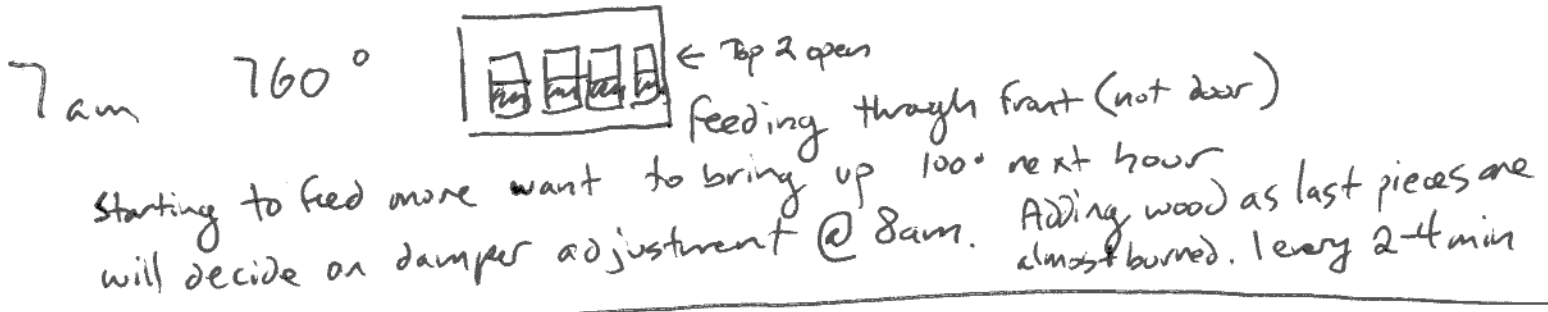 7am 760°
← Top 2 open
feeding through front (not door)
Starting to feed more want to bring up 100° next hour
will decide on damper adjustment @ 8am. Adding wood as last pieces are
almost burned. 1 every 2-4 min